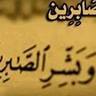 صَابِرِين
وَبَشِّرِ الصَّابِرِ